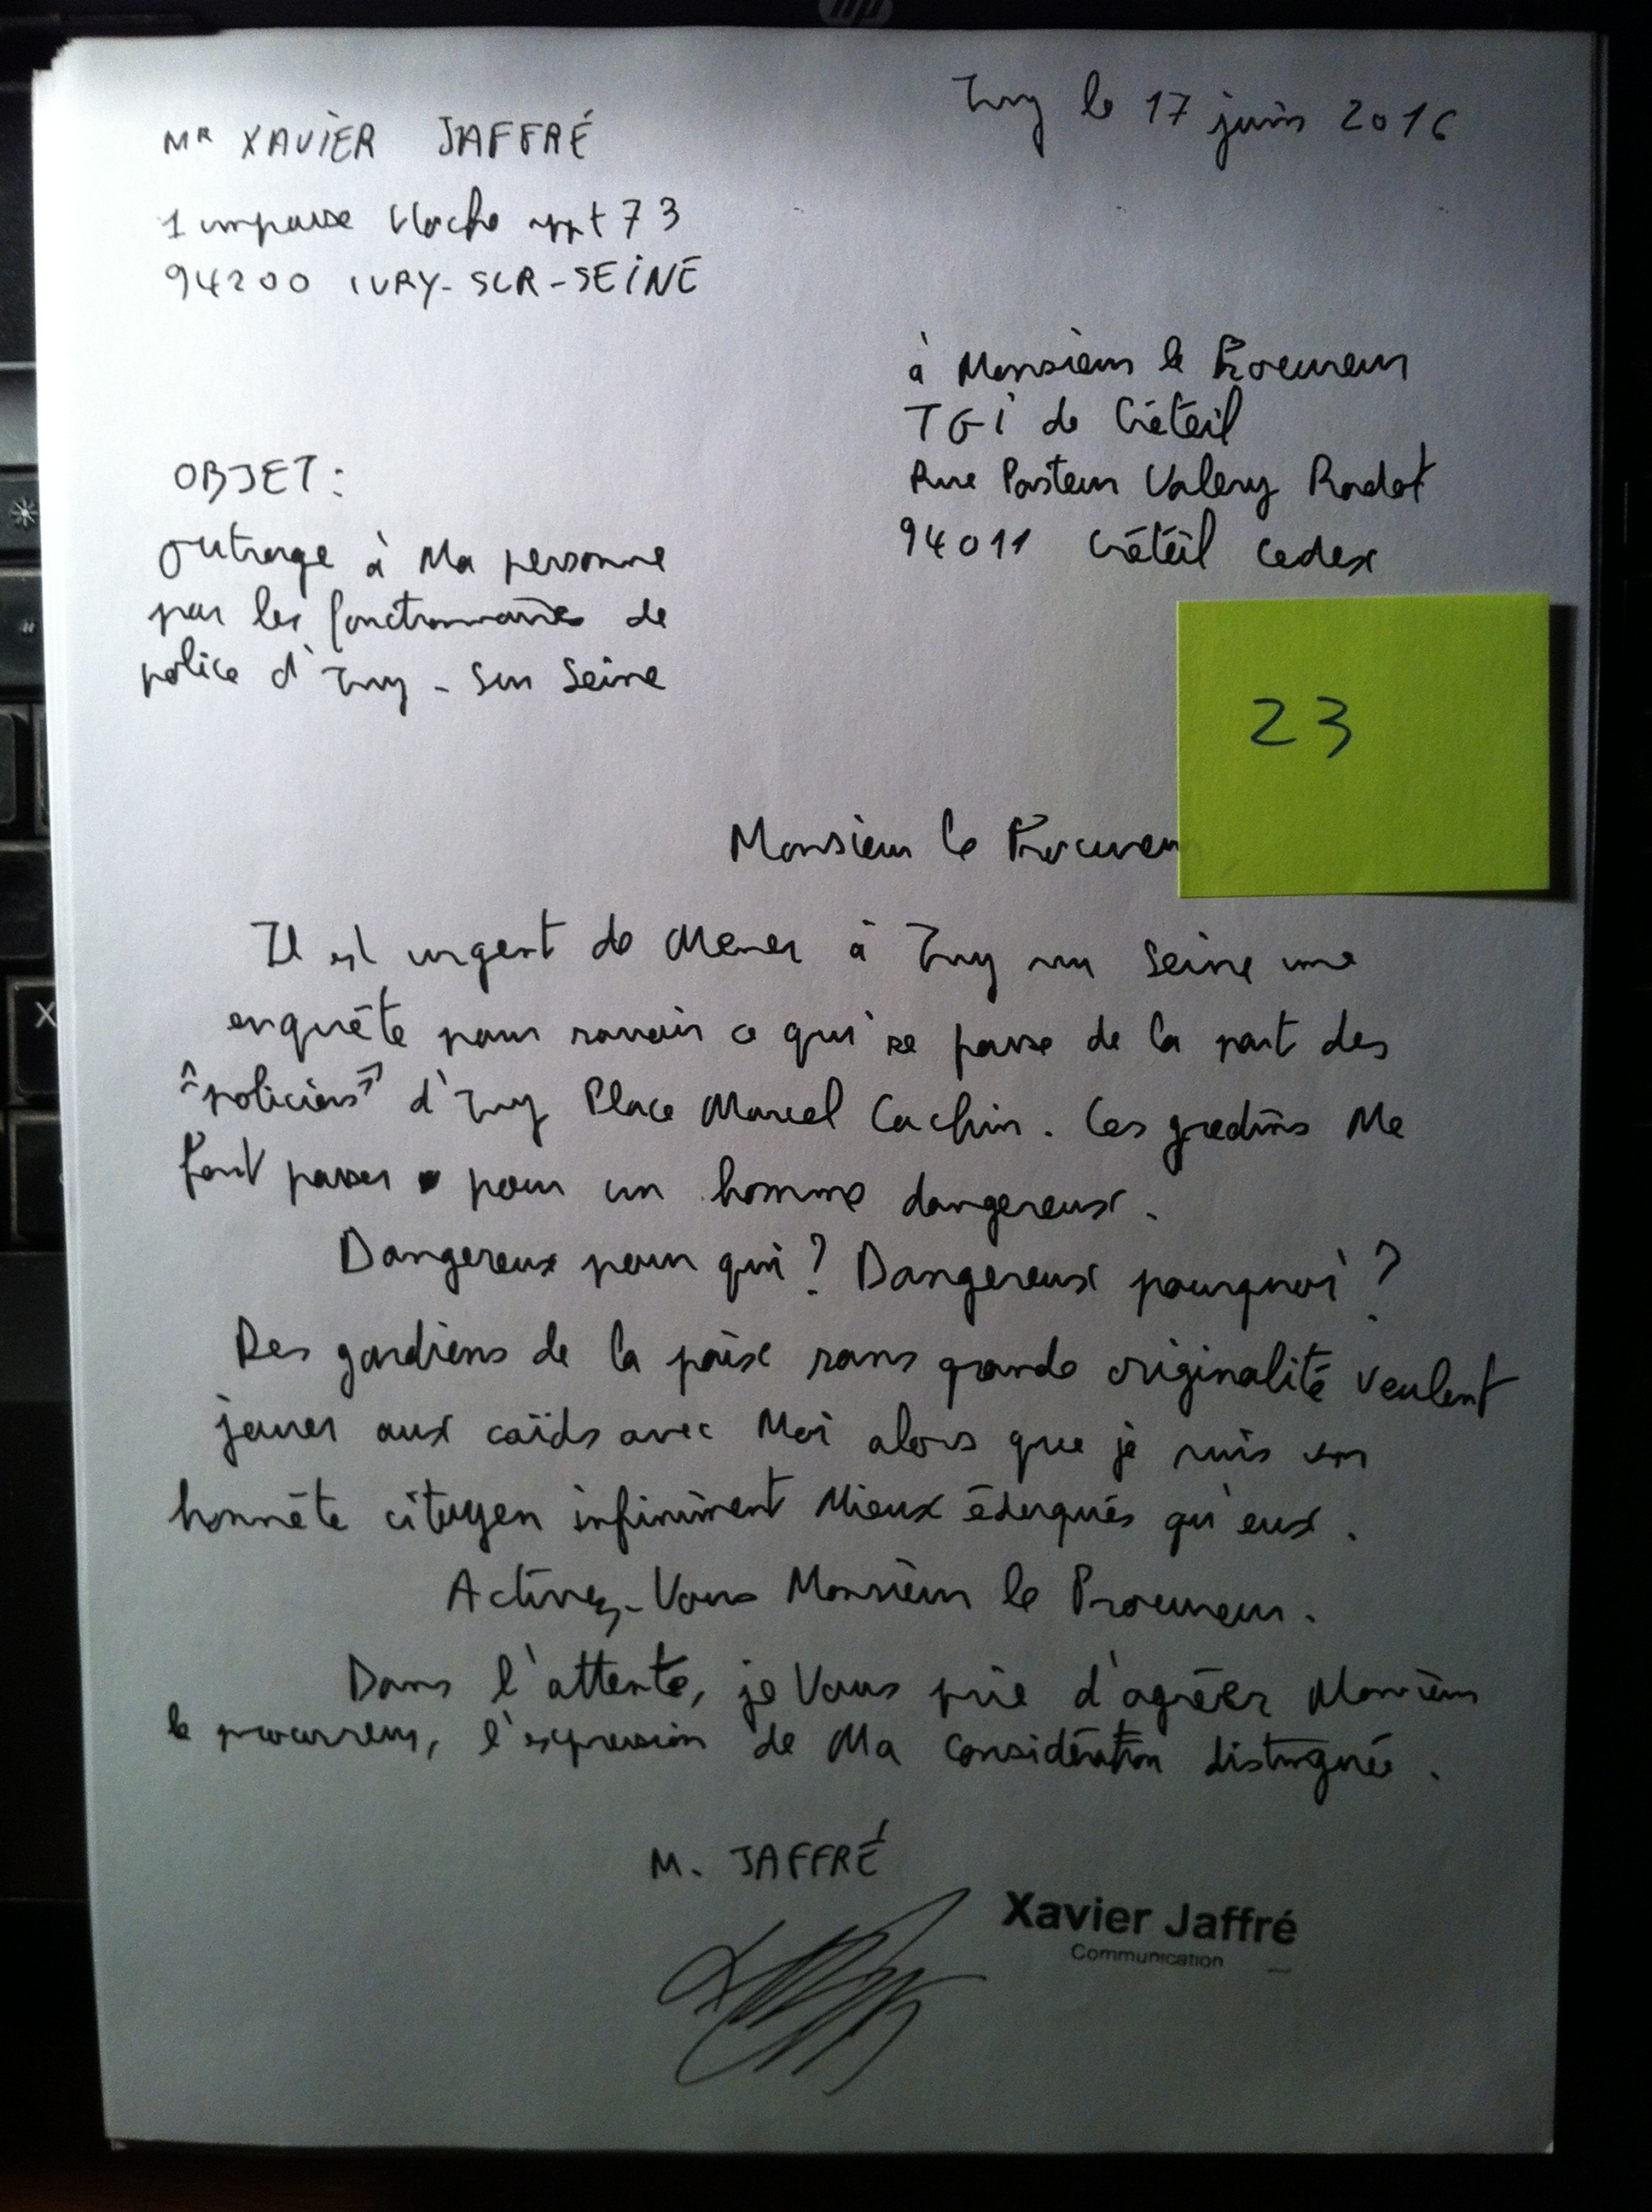 Ivry le 17 juin 2016
Mr XAVIER JAFFRÉ
1 impasse Hoche appt 73
94200 IVRY-SUR-SEINE
à Monsieur le Procureur
TGI de Créteil
Rue Pasteur Valery Radot
94011 Créteil Cedex
OBJET:
outrage à Ma personne
par les fonctionnaires de
police d'Ivry-sur Seine
23
Monsieur le Procureur
Il est urgent de Mener à Ivry sur Seine une
enquête pour savoir ce qui se passe de la part des
"policiers" d'Ivry Place Marcel Cachin. Ces gredins Me
font passer pour un homme dangereux.
Dangereux pour qui ? Dangereux pourquoi ?
Des gardiens de la paix sans grande originalité veulent
jouer aux caïds avec Moi alors que je suis un
honnête citoyen infiniment Mieux éduqués qu'eux.
Activez-Vous Monsieur le Procureur.
Dans l'attente, je Vous prie d'agréer Monsieur
le procureur, l'expression de Ma Considération distinguée.
M. JAFFRÉ
Xavier Jaffré
Communication
hp
X